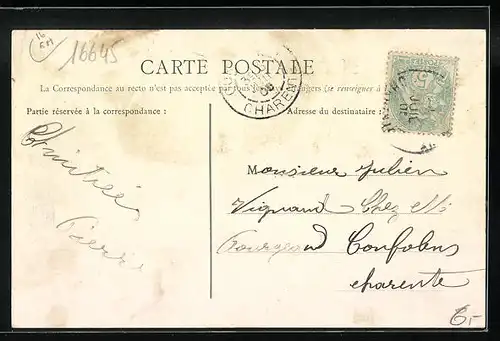 16
EM
16645
CARTE POSTALE
La Correspondance au recto n'est pas acceptée par tous les pays étrangers (se renseigner à la
Partie réservée à la correspondance :
Adresse du destinataire :
CHARENTE
JUIL
Amitiés
Pierre
Monsieur Julien
Vignaud Chez Mr
Confolens
charente
6,-